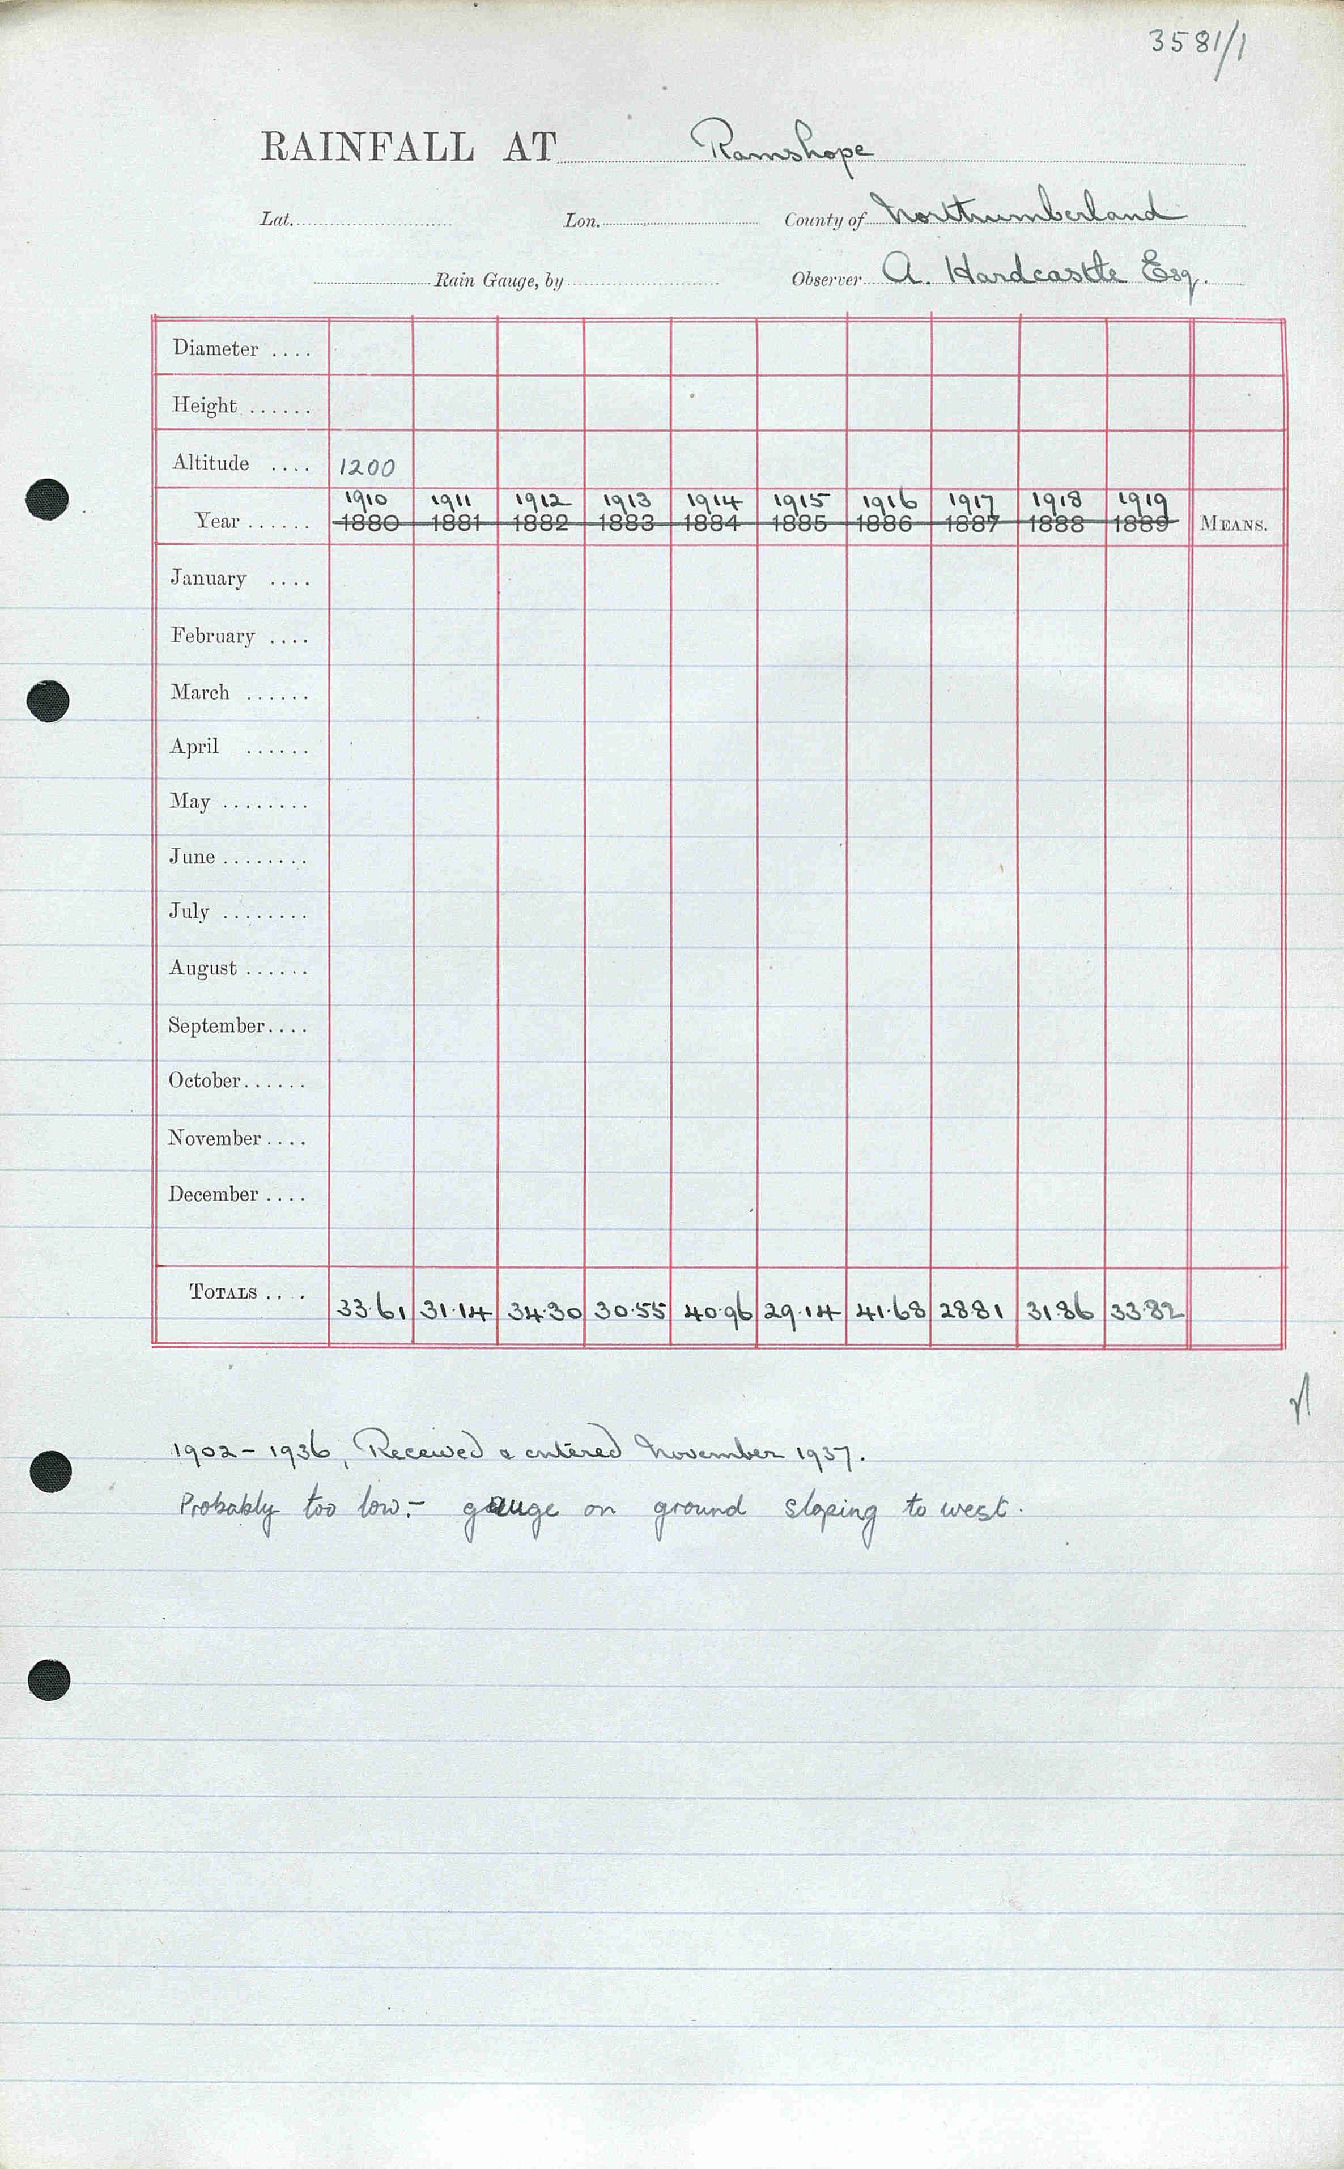 3581/1
RAINFALL AT Ramshope
Lat. Lon. County of Northumberland
Rain Gauge, by Observer A. Hardcastle Esq.
Diameter ....
Height ......
Altitude .... 1200
1910 1911 1912 1913 1914 1915 1916 1917 1918 1919
Year ...... 1880 1881 1882 1883 1884 1885 1886 1887 1888 1889 MEANS.
January ....
February ....
March ......
April ......
May ........
June ........
July ........
August ......
September....
October......
November....
December ....
TOTALS .... 33.61 31.14 34.30 30.55 40.96 29.14 41.68 28.81 31.86 33.82
1902 - 1936, Received & entered November 1937.
Probably too low:- gauge on ground sloping to west.